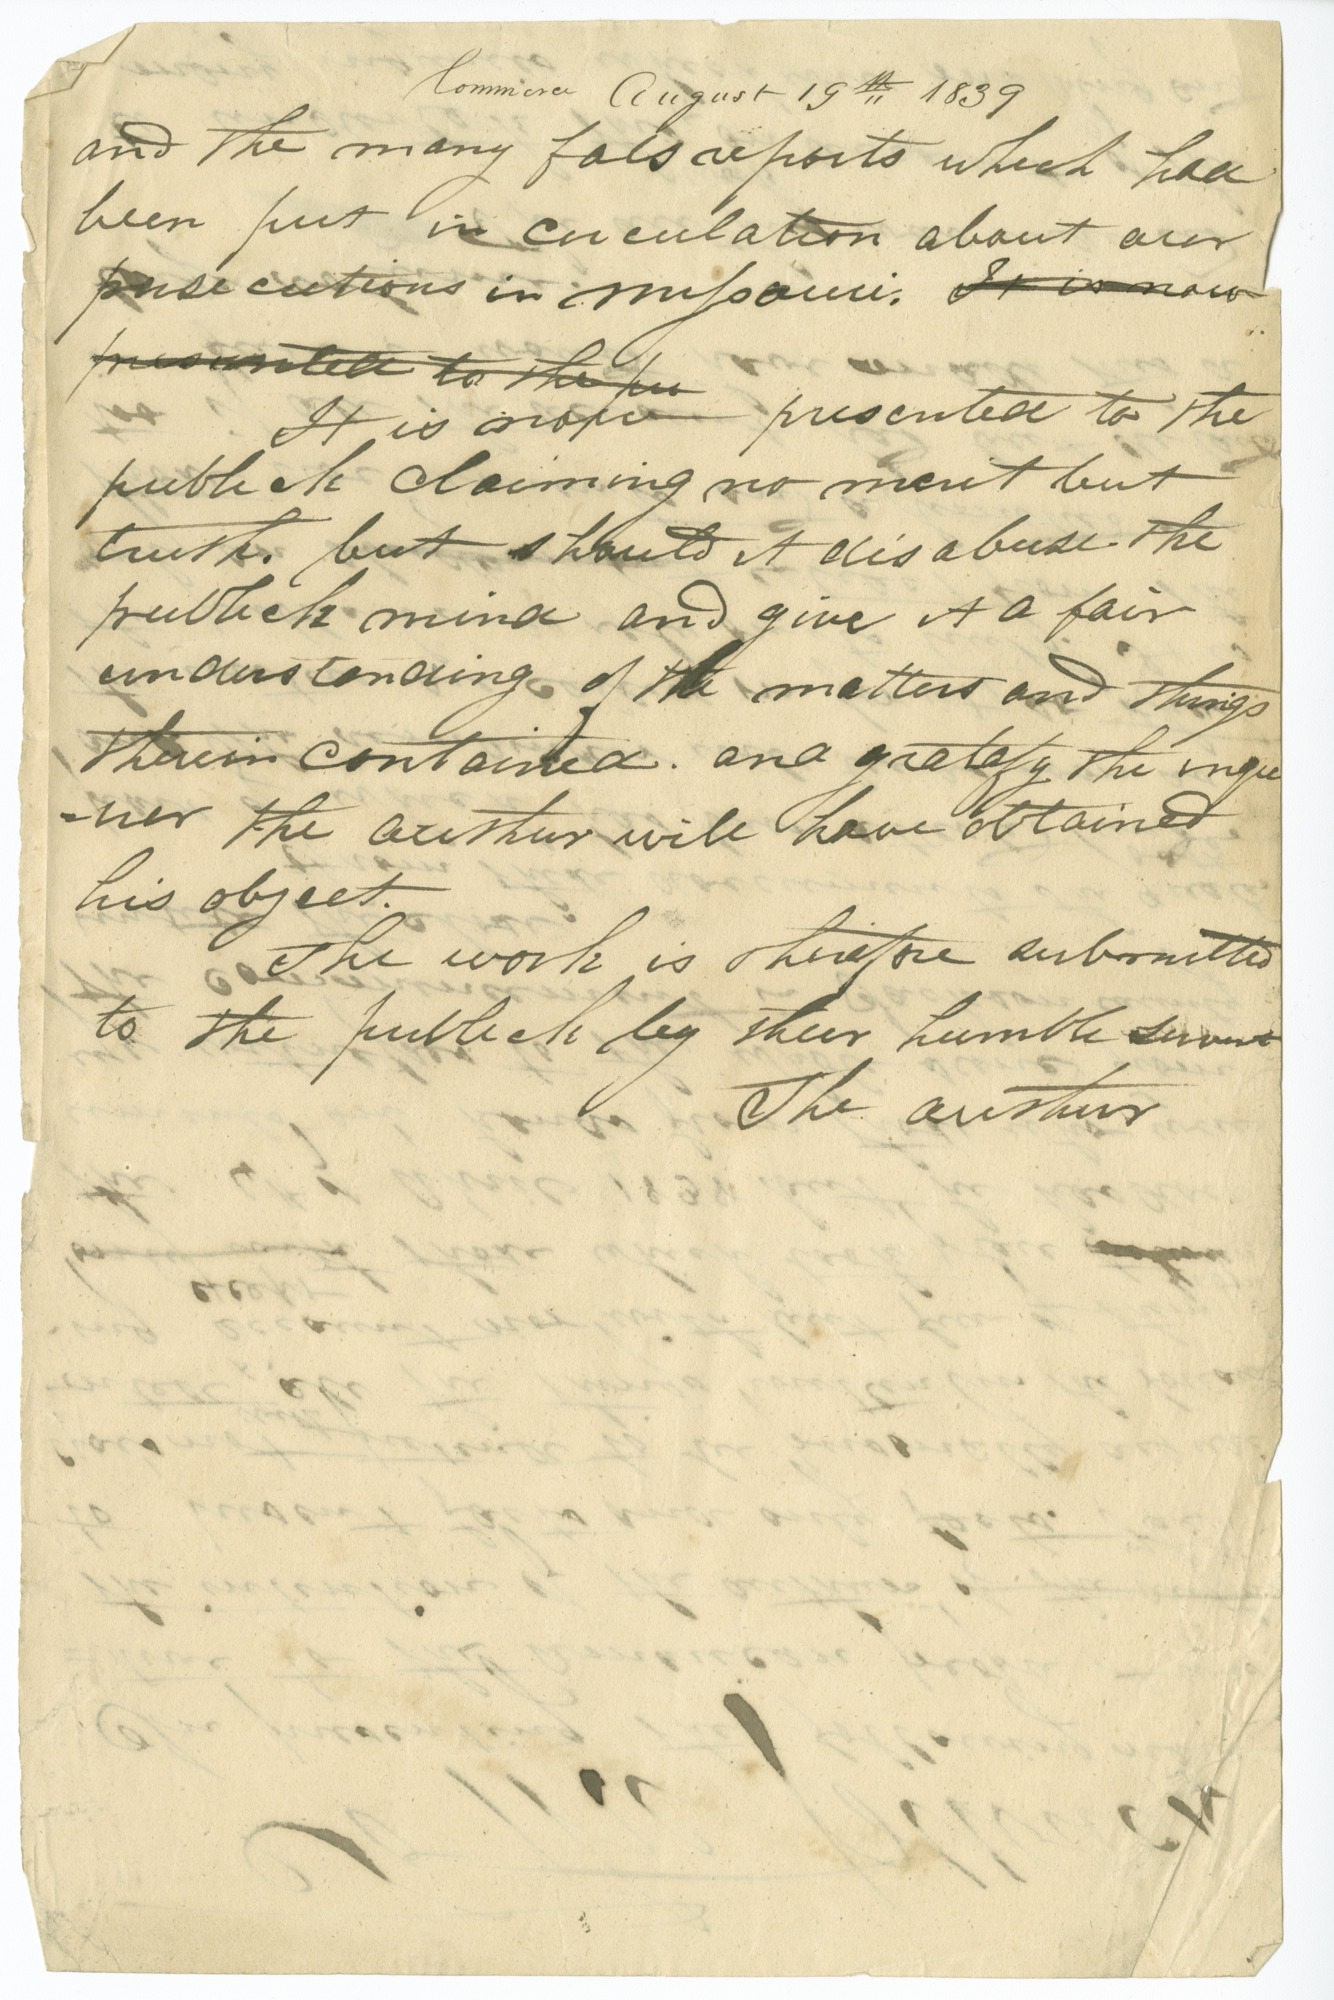 Commerce August 19th 1839
and the many fals reports which had
been put in circulation about our
persecutions in missouri. It is now
presented to the pu
It is now presented to the
publick claiming no merit but
truth. but should it disabuse the
publick mind and give it a fair
understanding of the matters and things
therein contained. and gratefy the inque
-rer the authur will have obtained
his object.
The work is therefore submitted
to the publick by their humble servant
The authur